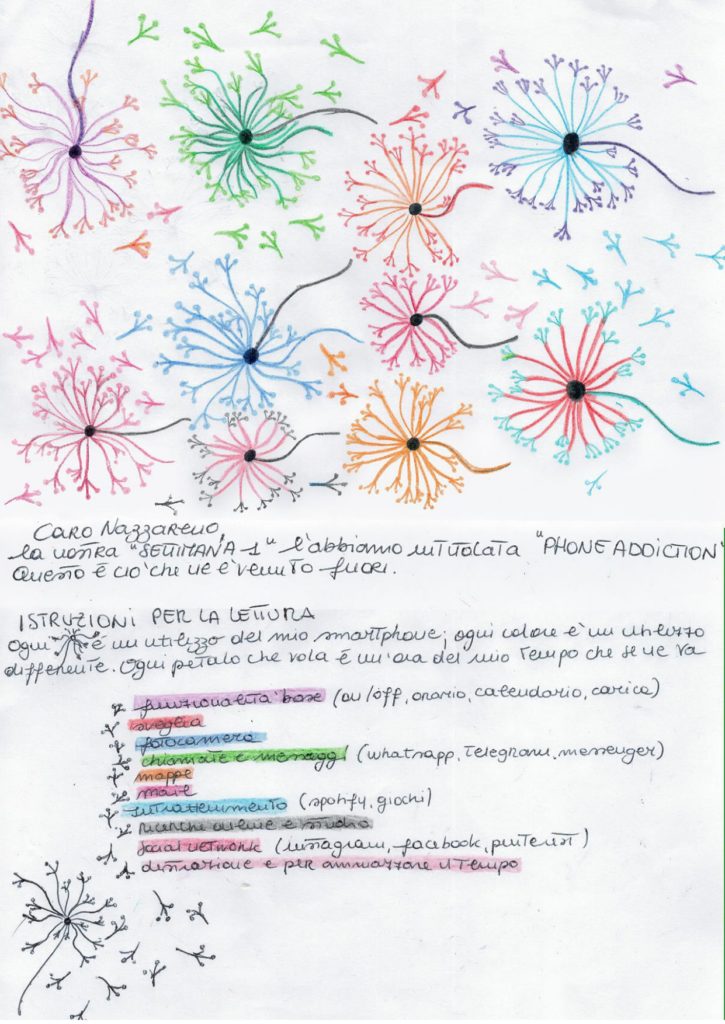 CARO NAZZARENO,
la nostra "SETTIMANA 1" l'abbiamo intitolata "PHONE ADDICTION"
Questo è ciò che ne è venuto fuori.
ISTRUZIONI PER LA LETTURA
Ogni è un utilizzo del mio smartphone; ogni colore è un utilizzo
differente. Ogni petalo che vola è un'ora del mio tempo che se ne va
funzionalità base (on/off, orario, calendario, carica)
sveglia
fotocamera
chiamate e messaggi (whatsapp, Telegram, messenger)
mappe
mail
intrattenimento (spotify, giochi)
ricerche online e studio
social network (instagram, facebook, pinterest)
distrazione e per ammazzare il tempo